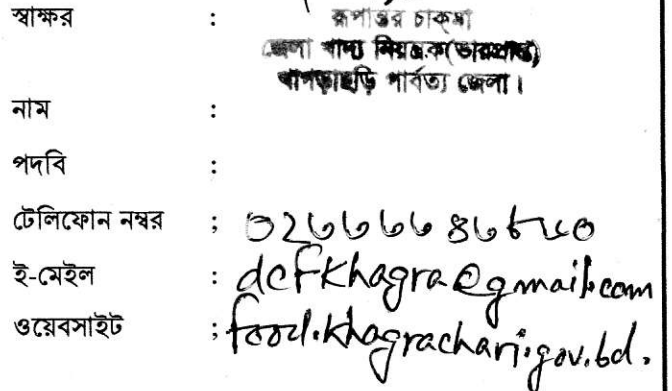 স্বাক্ষর :
রূপান্তর চাকমা
জেলা খাদ্য নিয়ন্ত্রক(ভারপ্রাপ্ত)
খাগড়াছড়ি পার্বত্য জেলা।
নাম :
পদবি :
টেলিফোন নম্বর :
ই-মেইল : dcfkhagra@gmail.com
ওয়েবসাইট : food.khagrachari.gov.bd.